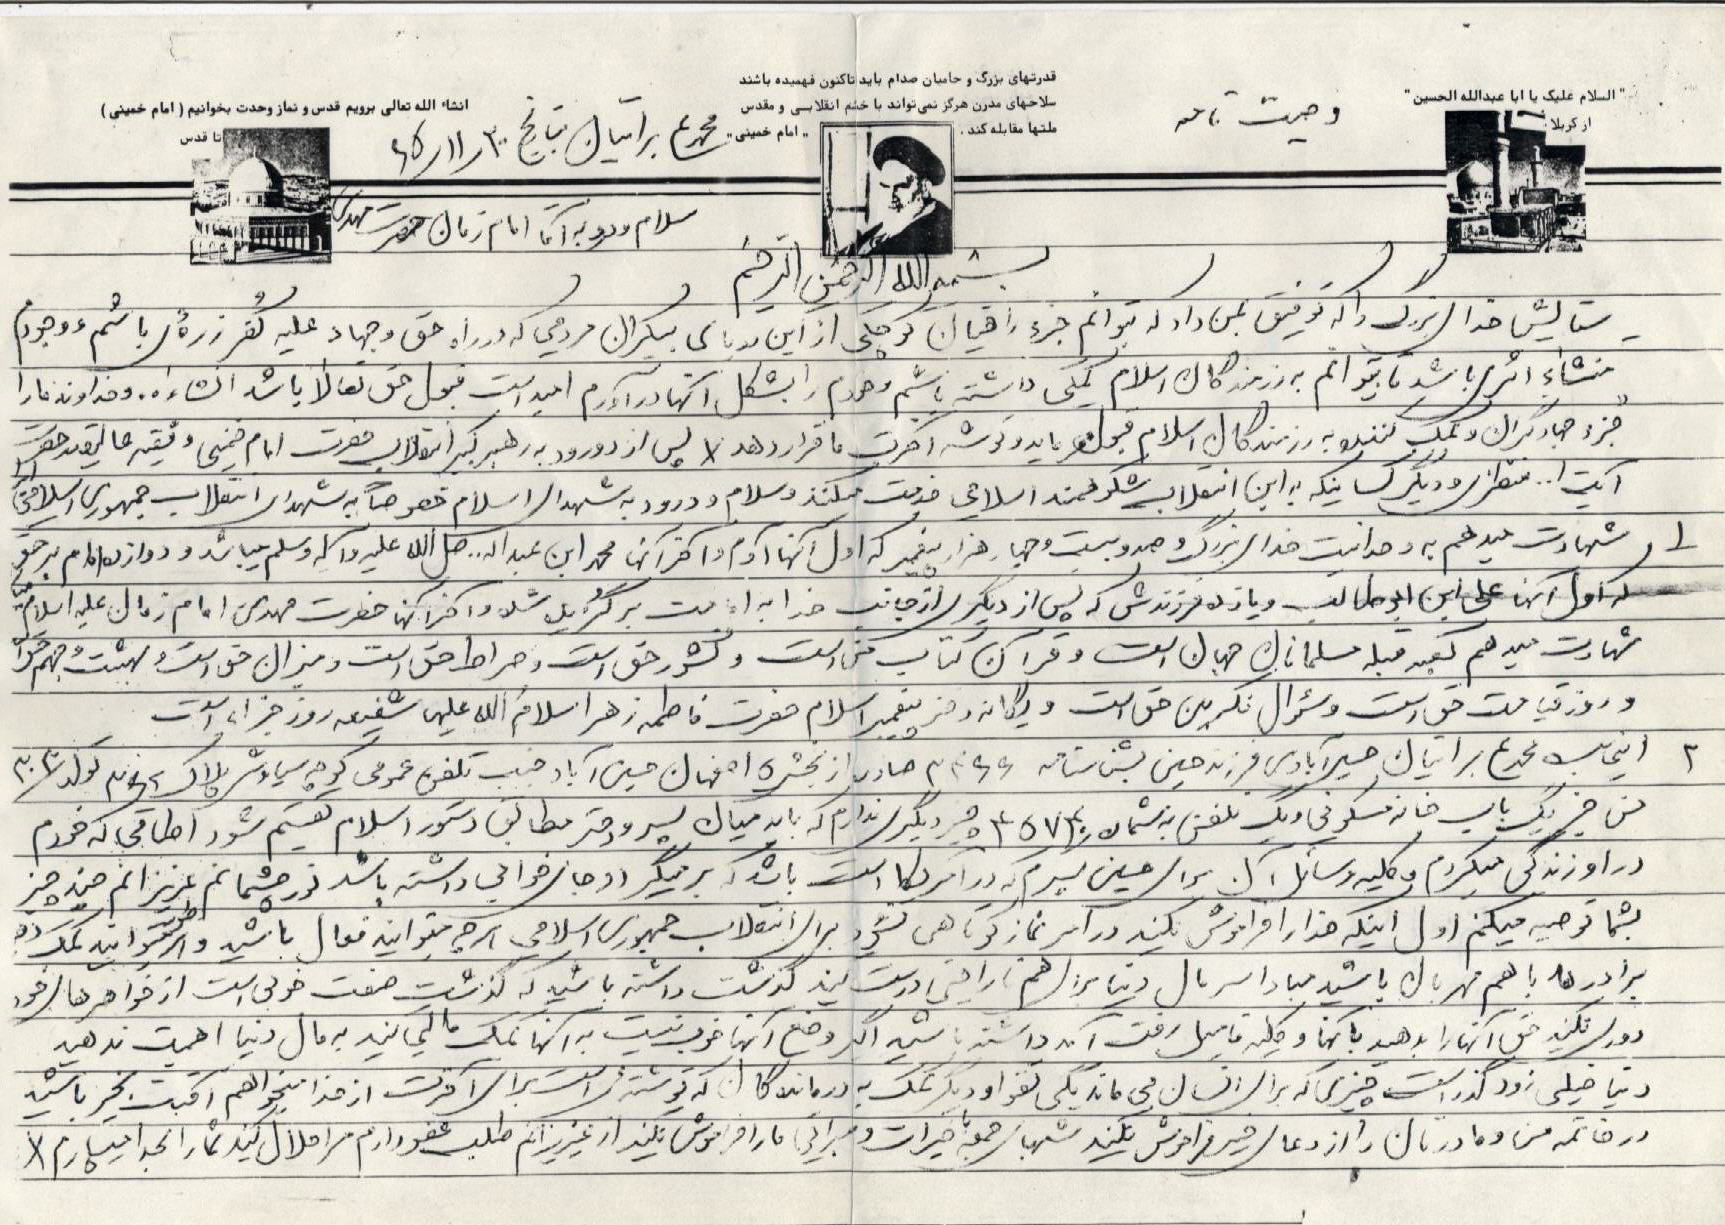 " السلام علیک یا ابا عبدالله الحسین "
از کربلا
وصیت نامه
قدرتهای بزرگ و حامیان صدام باید تاکنون فهمیده باشند
سلاحهای مدرن هرگز نمی‌تواند با خشم انقلابی و مقدس
ملتها مقابله کند . " امام خمینی "
انشاء الله تعالی برویم قدس و نماز وحدت بخوانیم ( امام خمینی )
تا قدس
براتیان بتاریخ ۳۰ر۱۱ر۶۵
سلام و درود به آقا امام زمان حضرت مهدی
بسم الله الرحمن الرحیم
ستایش خدای بزرگ را که توفیق بمن داد که بتوانم جزء راهیان کوچکی از این دریای بیکران مردمی که در راه حق و جهاد علیه کفر ذره‌ای باشم و وجودم
منشاء اثری باشد تا بتوانم به رزمندگان اسلام کمکی داشته باشم و خودم را بشکل آنها درآورم امید است قبول حق تعالا باشد انشاءاه. و خداوند ما را
جزء جهادگران و کمک کننده به رزمندگان اسلام قبول فرماید و توشه آخرت ما قرار دهد پس از درود به رهبر کبیر انقلاب حضرت امام خمینی و فقیه عالیقدر حضرت
آیت ا.. منتظری و دیگر کسانیکه به این انقلاب شکوهمند اسلامی خدمت میکنند و سلام و درود به شهدای اسلام خصوصاً به شهدای انقلاب جمهوری اسلامی
۱ شهادت میدهم به وحدانیت خدای بزرگ و صد و بیست و چهار هزار پیغمبر که اول آنها آدم و آخر آنها محمد ابن عبداله.. صل الله علیه و آله وسلم میباشد و دوازده امام بر حق
که اول آنها علی ابن ابوطالب و یازده فرزندش که پس از دیگری از جانب خدا به امامت برگزیده شده و آخر آنها حضرت مهدی امام زمان علیه اسلام
شهادت میدهم کعبه قبله مسلمانان جهان است و قرآن کتاب من است و کشور حق است و صراط حق است و میزان حق است و بهشت و جهنم حق
و روز قیامت حق است و سئوال نکیرین حق است و یگانه دختر پیغمبر اسلام حضرت فاطمه زهرا سلام الله علیها شفیعه روز جزا است
۲ اینجانب براتیان حسین آبادی فرزند حسین بشناسنامه صادره از بخش ۵ اصفهان حسین آباد جنب تلفن عمومی کوچه سیاوش پلاک
من جز یک باب خانه مسکونی و یک تلفن به شماره چیز دیگری ندارم که باید میان پسر و دختر مطابق دستور اسلام تقسیم شود اطاقی که خودم
در او زندگی میکردم و کلیه وسائل آن برای حسین پسرم که در آمریکا است باشد که برمیگردد جای خوابی داشته باشد نور چشمانم عزیزانم چند چیز
بشما توصیه میکنم اول اینکه خدا را فراموش نکنید در امر نماز کوتاهی نشود برای انقلاب جمهوری اسلامی هر چه میتوانید فعال باشید و میتوانید کمک
برادرها با هم مهربان باشید مبادا سر مال دنیا برای هم ناراحتی درست کنید گذشت داشته باشید که گذشت صفت خوبی است از خواهرهای خود
دوری نکنید حق آنها را بدهید با آنها و کلیه فامیل رفت آمد داشته باشید اگر وضع آنها خوب نیست به آنها کمک مالی کنید به مال دنیا اهمیت ندهید
دنیا خیلی زود گذر است چیزی که برای انسان می ماند یکی تقوا و دیگر کمک به درماندگان که توشه‌ای است برای آخرت از خدا میخواهم آقبت بخیر باشید
در خاتمه من و مادرتان را از دعای خیر فراموش نکنید شبهای جمعه با خیرات و میراتی ما را فراموش نکنید از عزیزانم طلب عفو دارم مرا حلال کنید شما را بخدا میسپارم